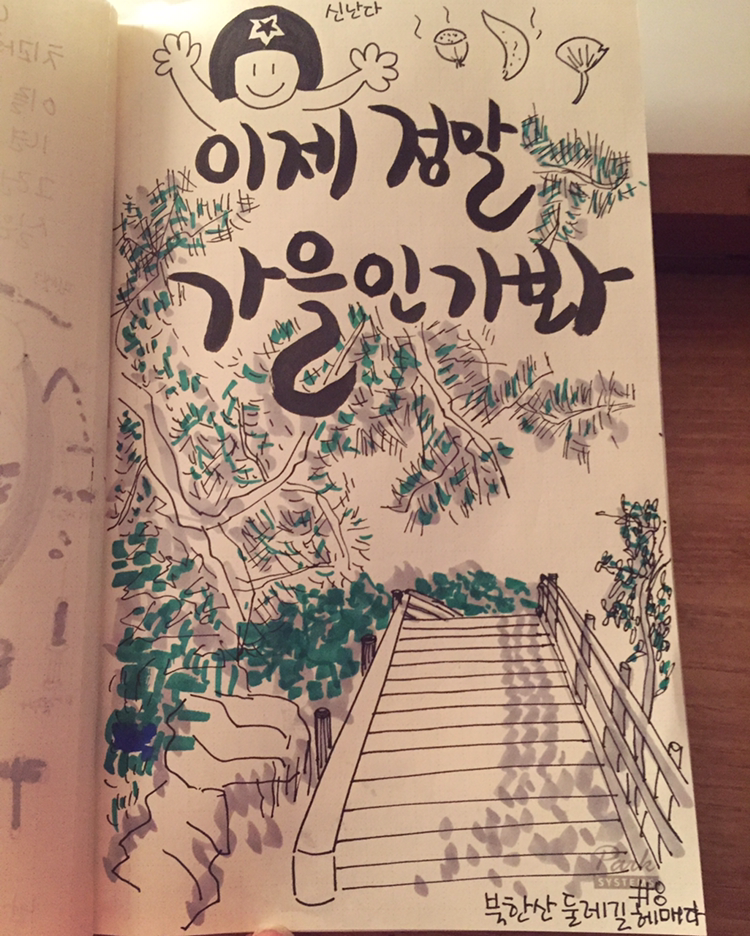 신난다
이제 정말
가을인가봐
Park
SYSTEMS
북한산 둘레길 #을
헤매다